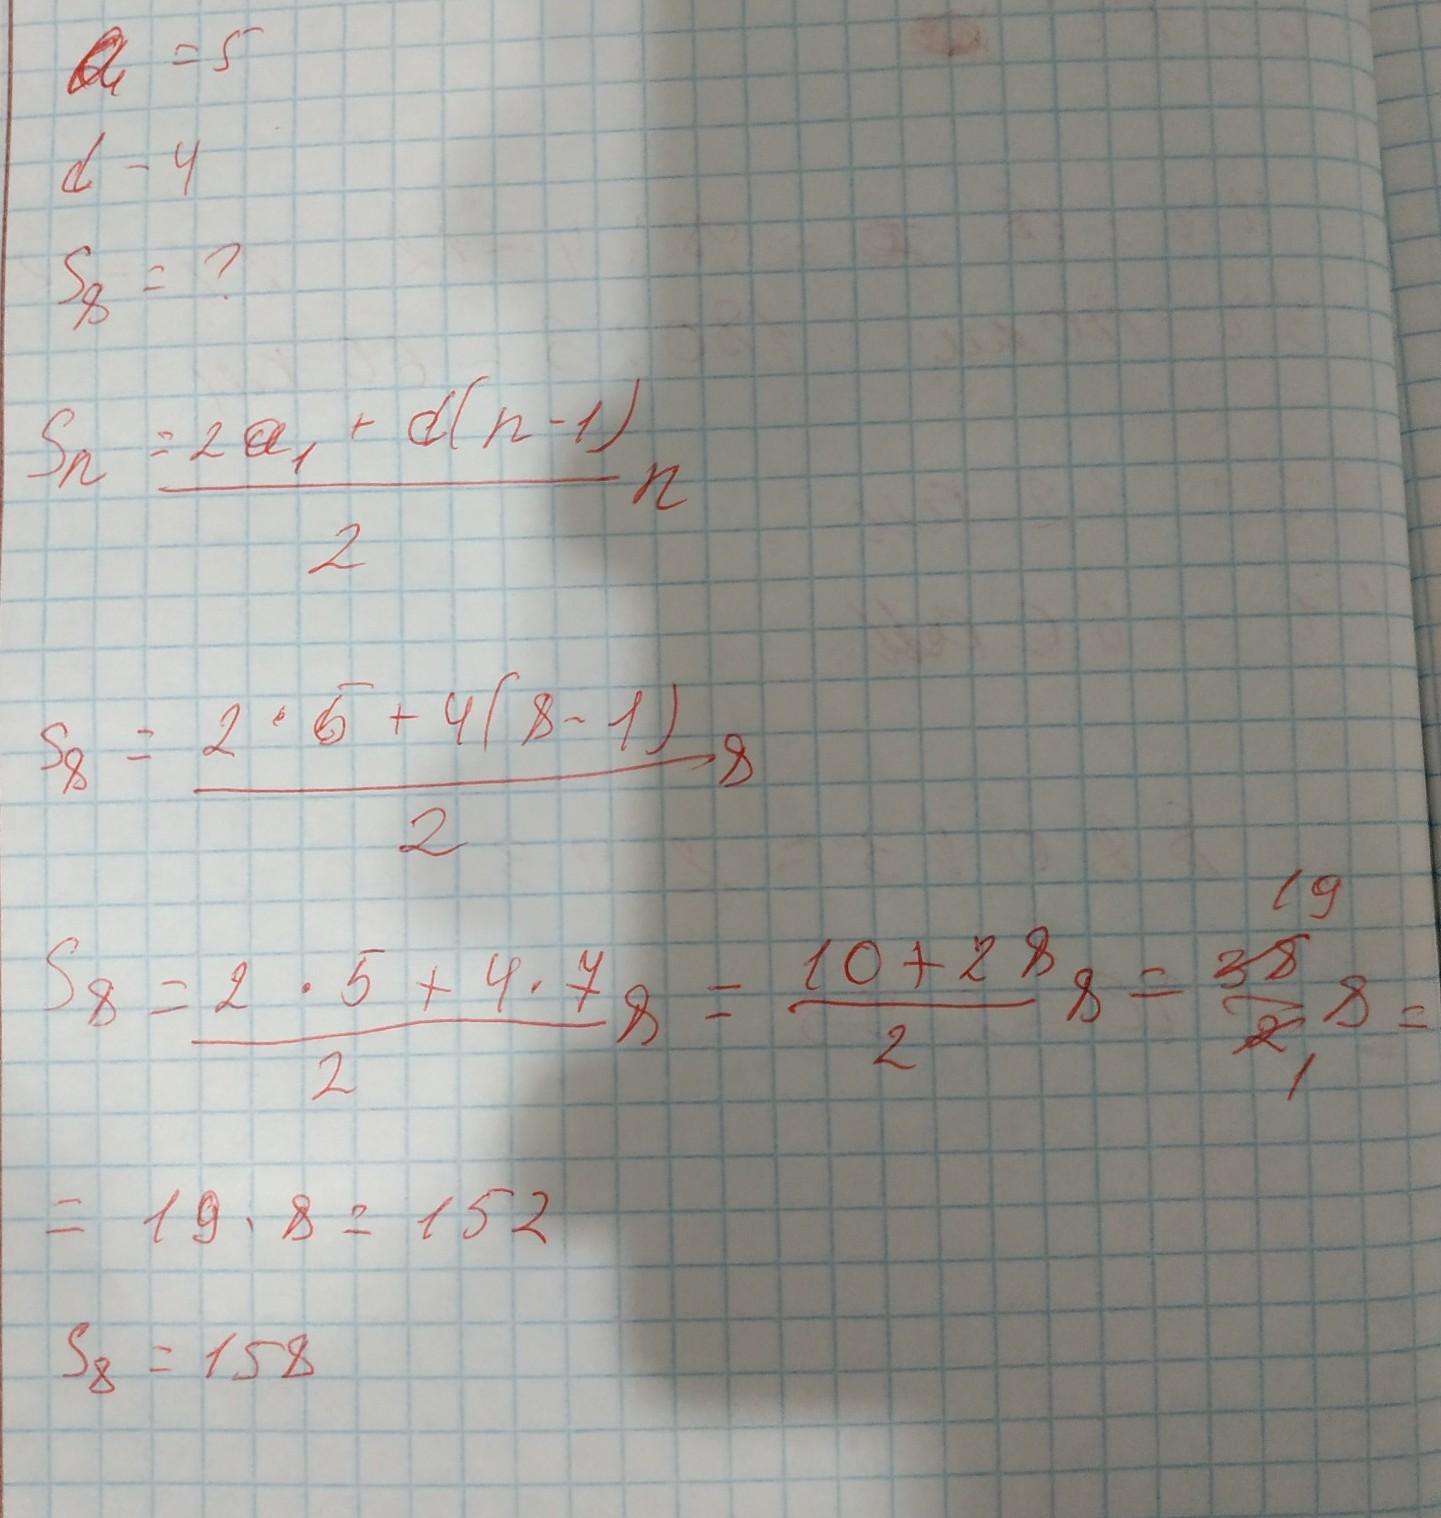 a₁ = 5
d - 4
S₈ = ?
Sₙ = (2a₁ + d(n-1))/2 n
S₈ = (2 · 5 + 4(8-1))/2 8
19
S₈ = (2 · 5 + 4 · 7)/2 8 = (10+28)/2 8 = 38/2 8 =
1
= 19 · 8 = 152
S₈ = 158